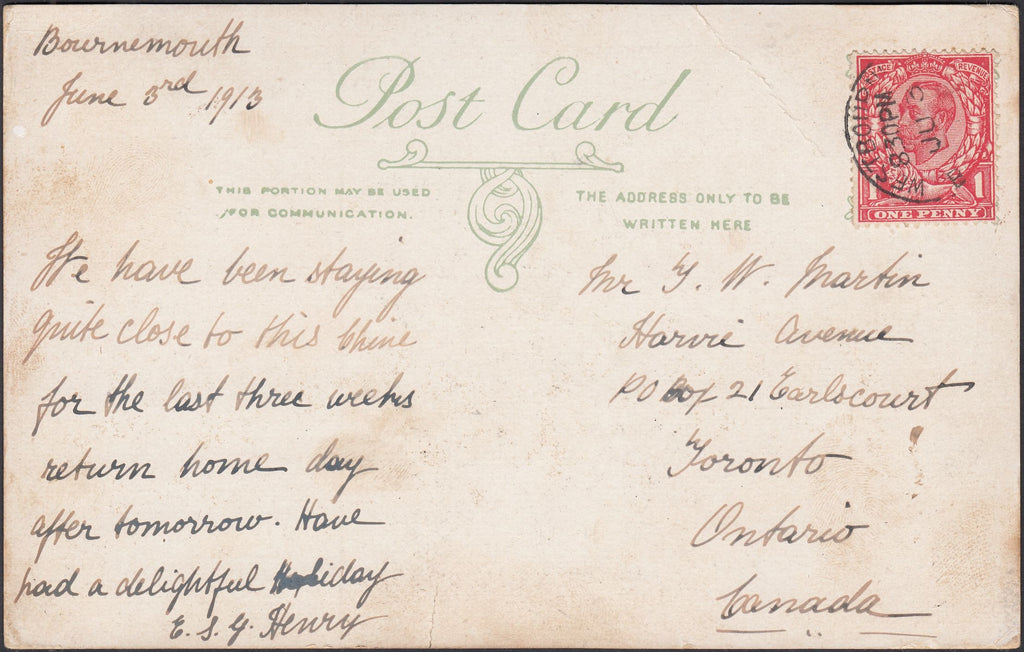 Bournemouth
June 3rd 1913
Post Card
THIS PORTION MAY BE USED
FOR COMMUNICATION.
THE ADDRESS ONLY TO BE
WRITTEN HERE
POSTAGE REVENUE
1 1
ONE PENNY
8 30 PM
JU
We have been staying
quite close to this Chine
for the last three weeks
return home day
after tomorrow. Have
had a delightful Holiday
E. S. G. Henry
Mr T. W. Martin
Harvie Avenue
PO Box 21 Earlscourt
Toronto
Ontario
Canada